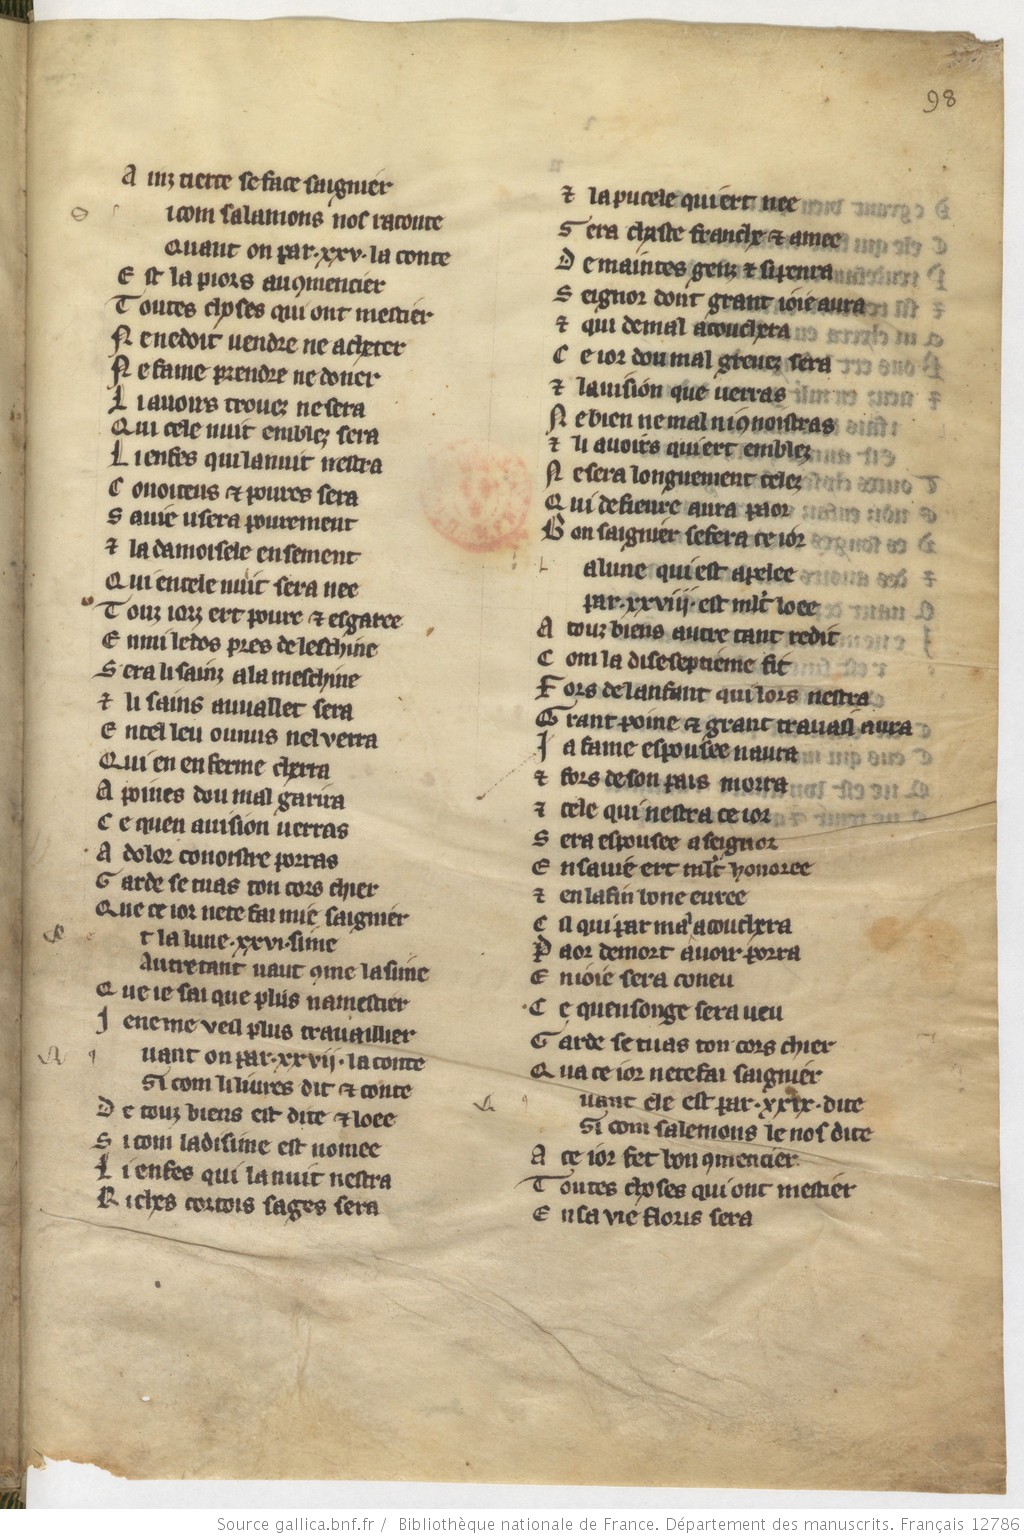 98
A inz tierce se face saignier
icom salamons nos raconte
Quant on par .xxv. la conte
E st la piors au 9mencier
T outes choses qui ont mestier
N e ne doit vendre ne acheter
N e fame prendre ne doner
L i avoirs trouez ne sera
Q ui cele nuit emblez sera
L i enfes qui la nuit nestra
C onoiteus et poures sera
S a uie usera pourement
⁊ la damoisele ensement
Q ui en cele nuit sera nee
T ouz iorz ert poure ⁊ esgaree
E nmi le dos pres de leschine
S era li sainz a la meschine
⁊ li sains au uallet sera
E n tel leu ou nus nel verra
Q ui en enferme cherra
A poines dou mal garira
C e quen auision uerras
A dolor conoistre porras
G arde se tu as ton cors chier
Q ue ce ior ne te fai mie saignier
t la lune .xxvi. sime
Autretant uaut 9me la sime
Q ue ie sai que plus na mestier
J e ne me veil plus trauaillier
uant on par .xxvii. la conte
Si com li liures dit ⁊ conte
D e touz biens est dite ⁊ loee
S i com la disime est nomee
L i enfes qui la nuit nestra
R iches cortois sages sera
⁊ la pucele qui ert nee
S era chaste franche ⁊ amee
D e maintes genz ⁊ si penra
S eignor dont grant ioie aura
⁊ qui de mal acouchera
C e ior dou mal greuez sera
⁊ la uision que uerras
N e bien ne mal ni 9noistras
⁊ li auoirs qui ert emblez
N e sera longuement celez
Q ui de fieure aura paor
B on saignier se fera ce ior
a lune qui est apelee
par .xxviii. est mlt loee
A touz biens autre tant redit
C om la diseseptieme fit
F ors de lanfant qui lors nestra
G rant poine ⁊ grant trauail aura
J a fame espousee naura
⁊ fors de son pais morra
⁊ cele qui nestra ce ior
S era espousee a seignor
E n sa uie ert mlt honoree
⁊ en la fin bone euree
C il qui par mal acouchera
P aor de mort auoir porra
E n ioie sera coneu
C e quen songe sera ueu
G arde se tu as ton cors chier
Q ua ce ior ne te fai saignier
uant ele est par .xxix. dite
Si com salemons le nos dite
A ce ior fet bon 9mencier
T outes choses qui ont mestier
E n sa vie floris sera
Source gallica.bnf.fr / Bibliothèque nationale de France. Département des manuscrits. Français 12786